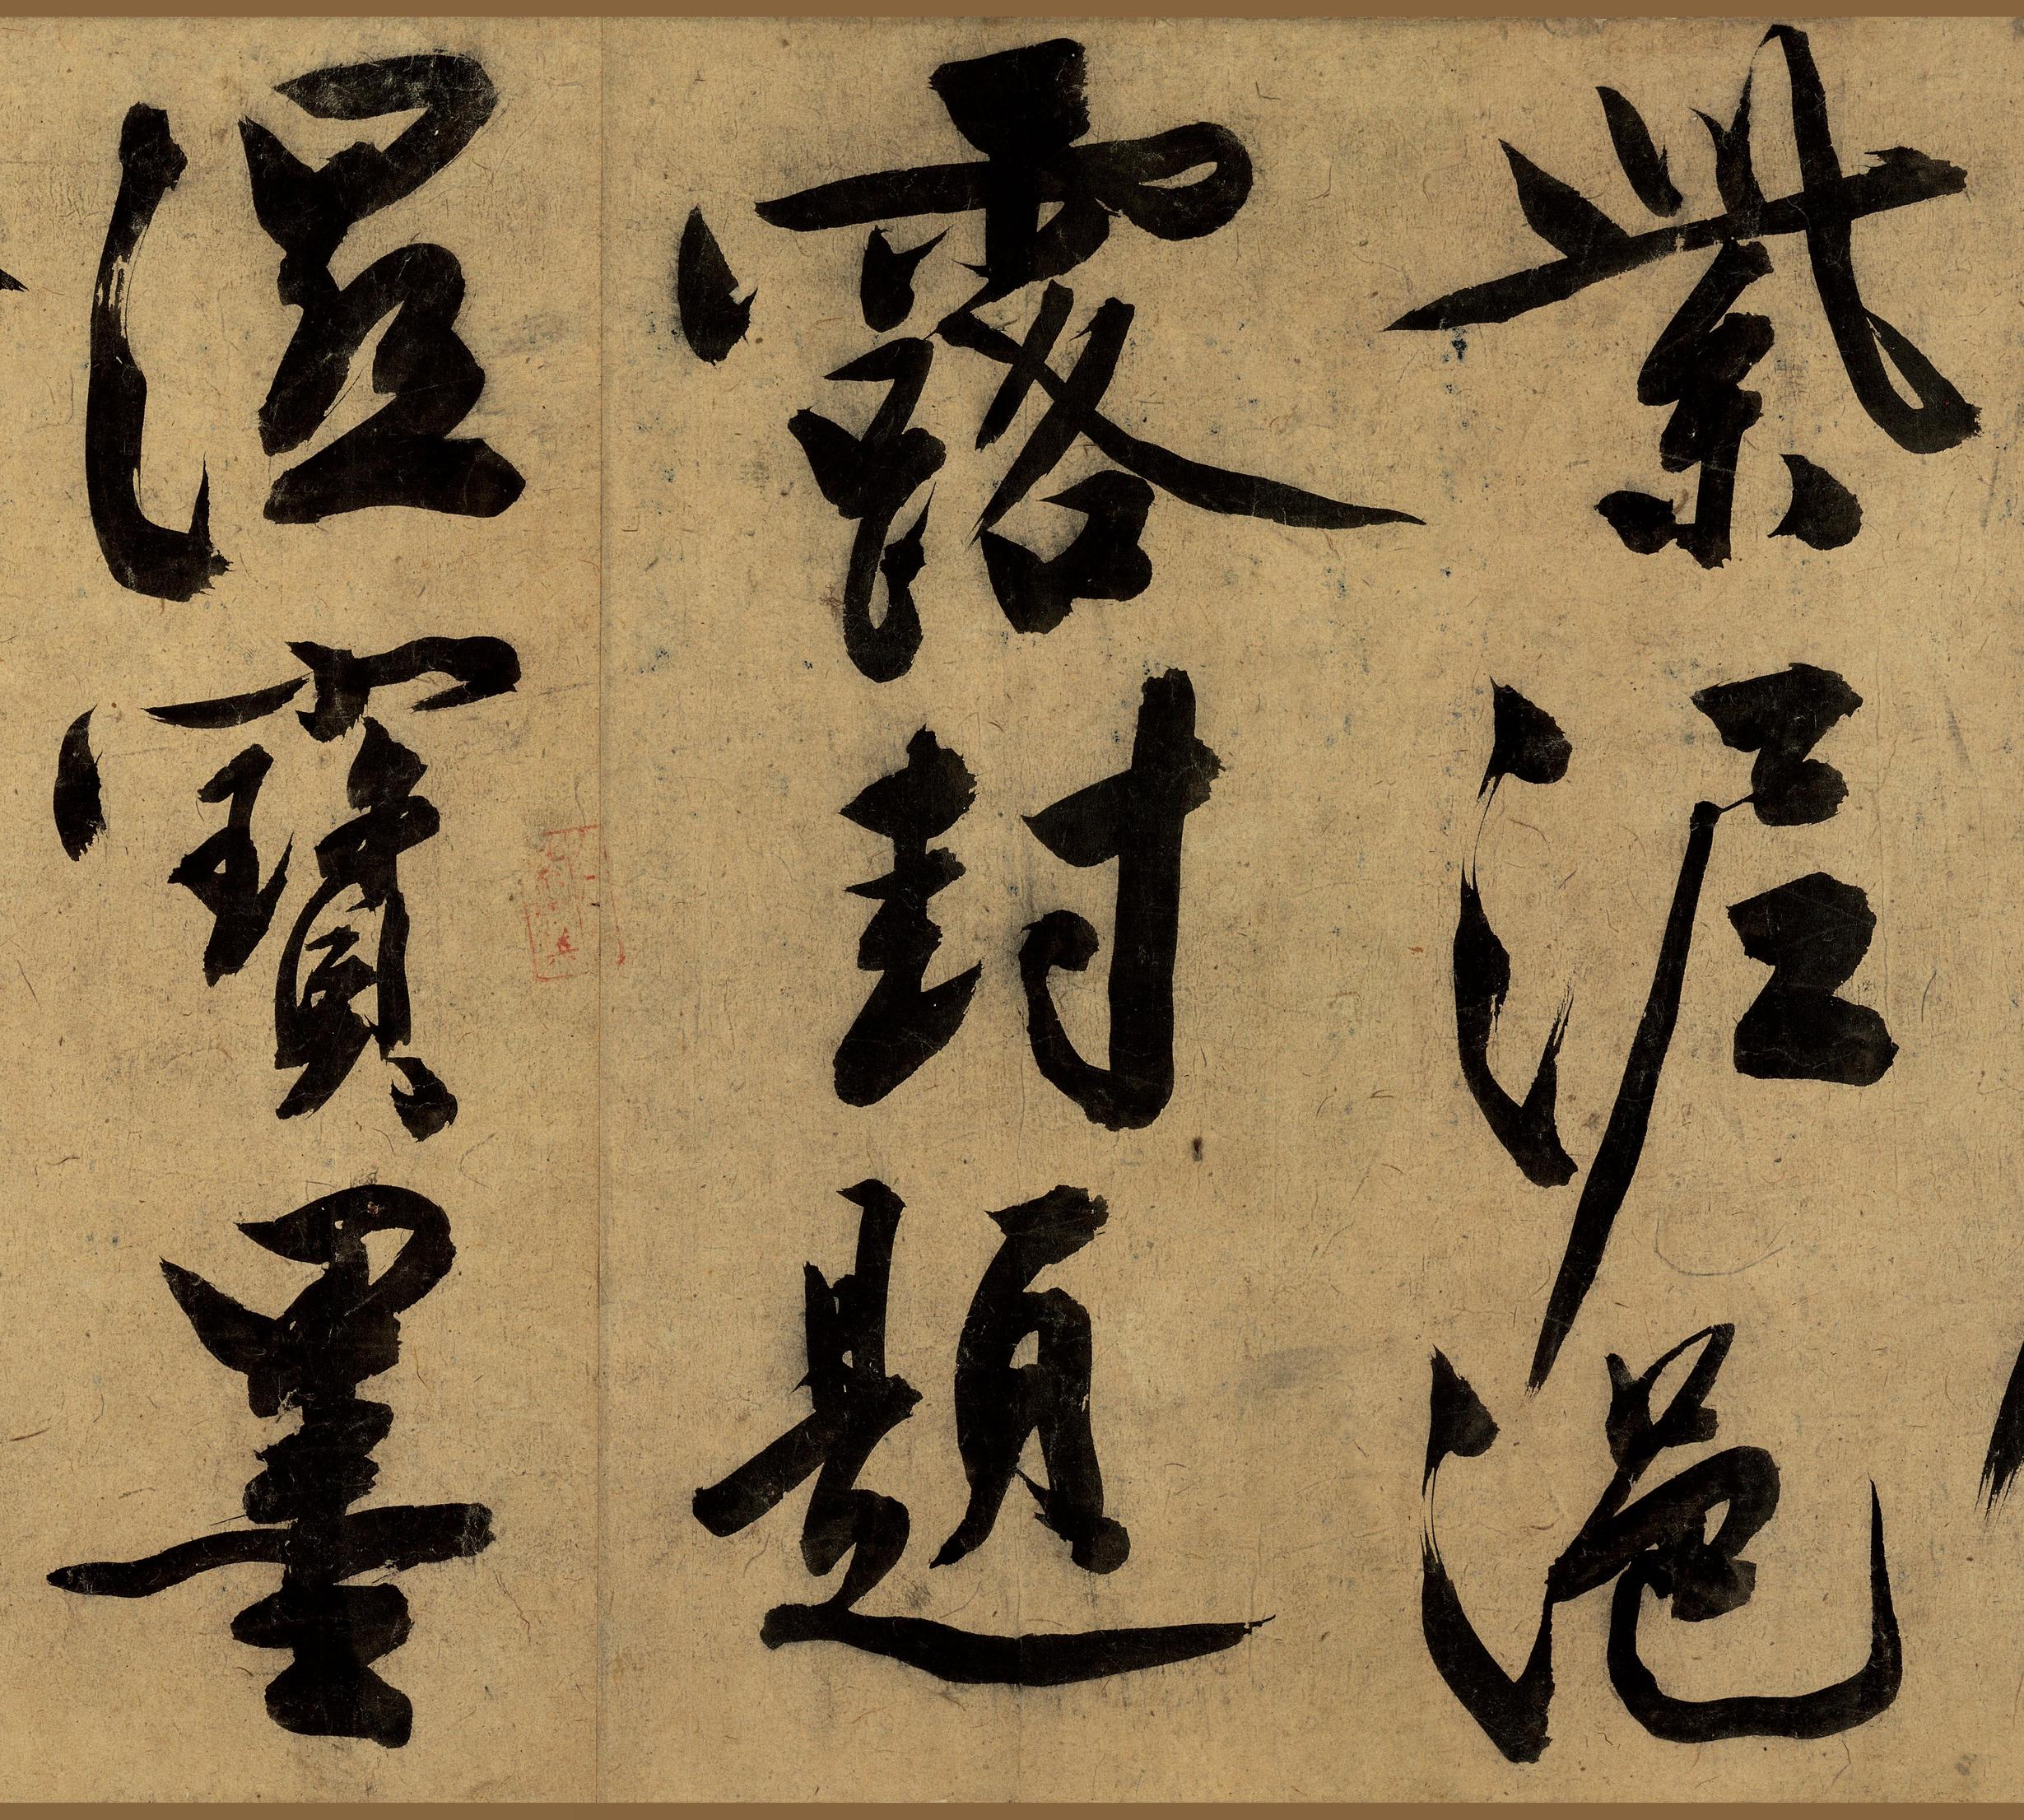 紫泥浥
露封題
濕寶墨